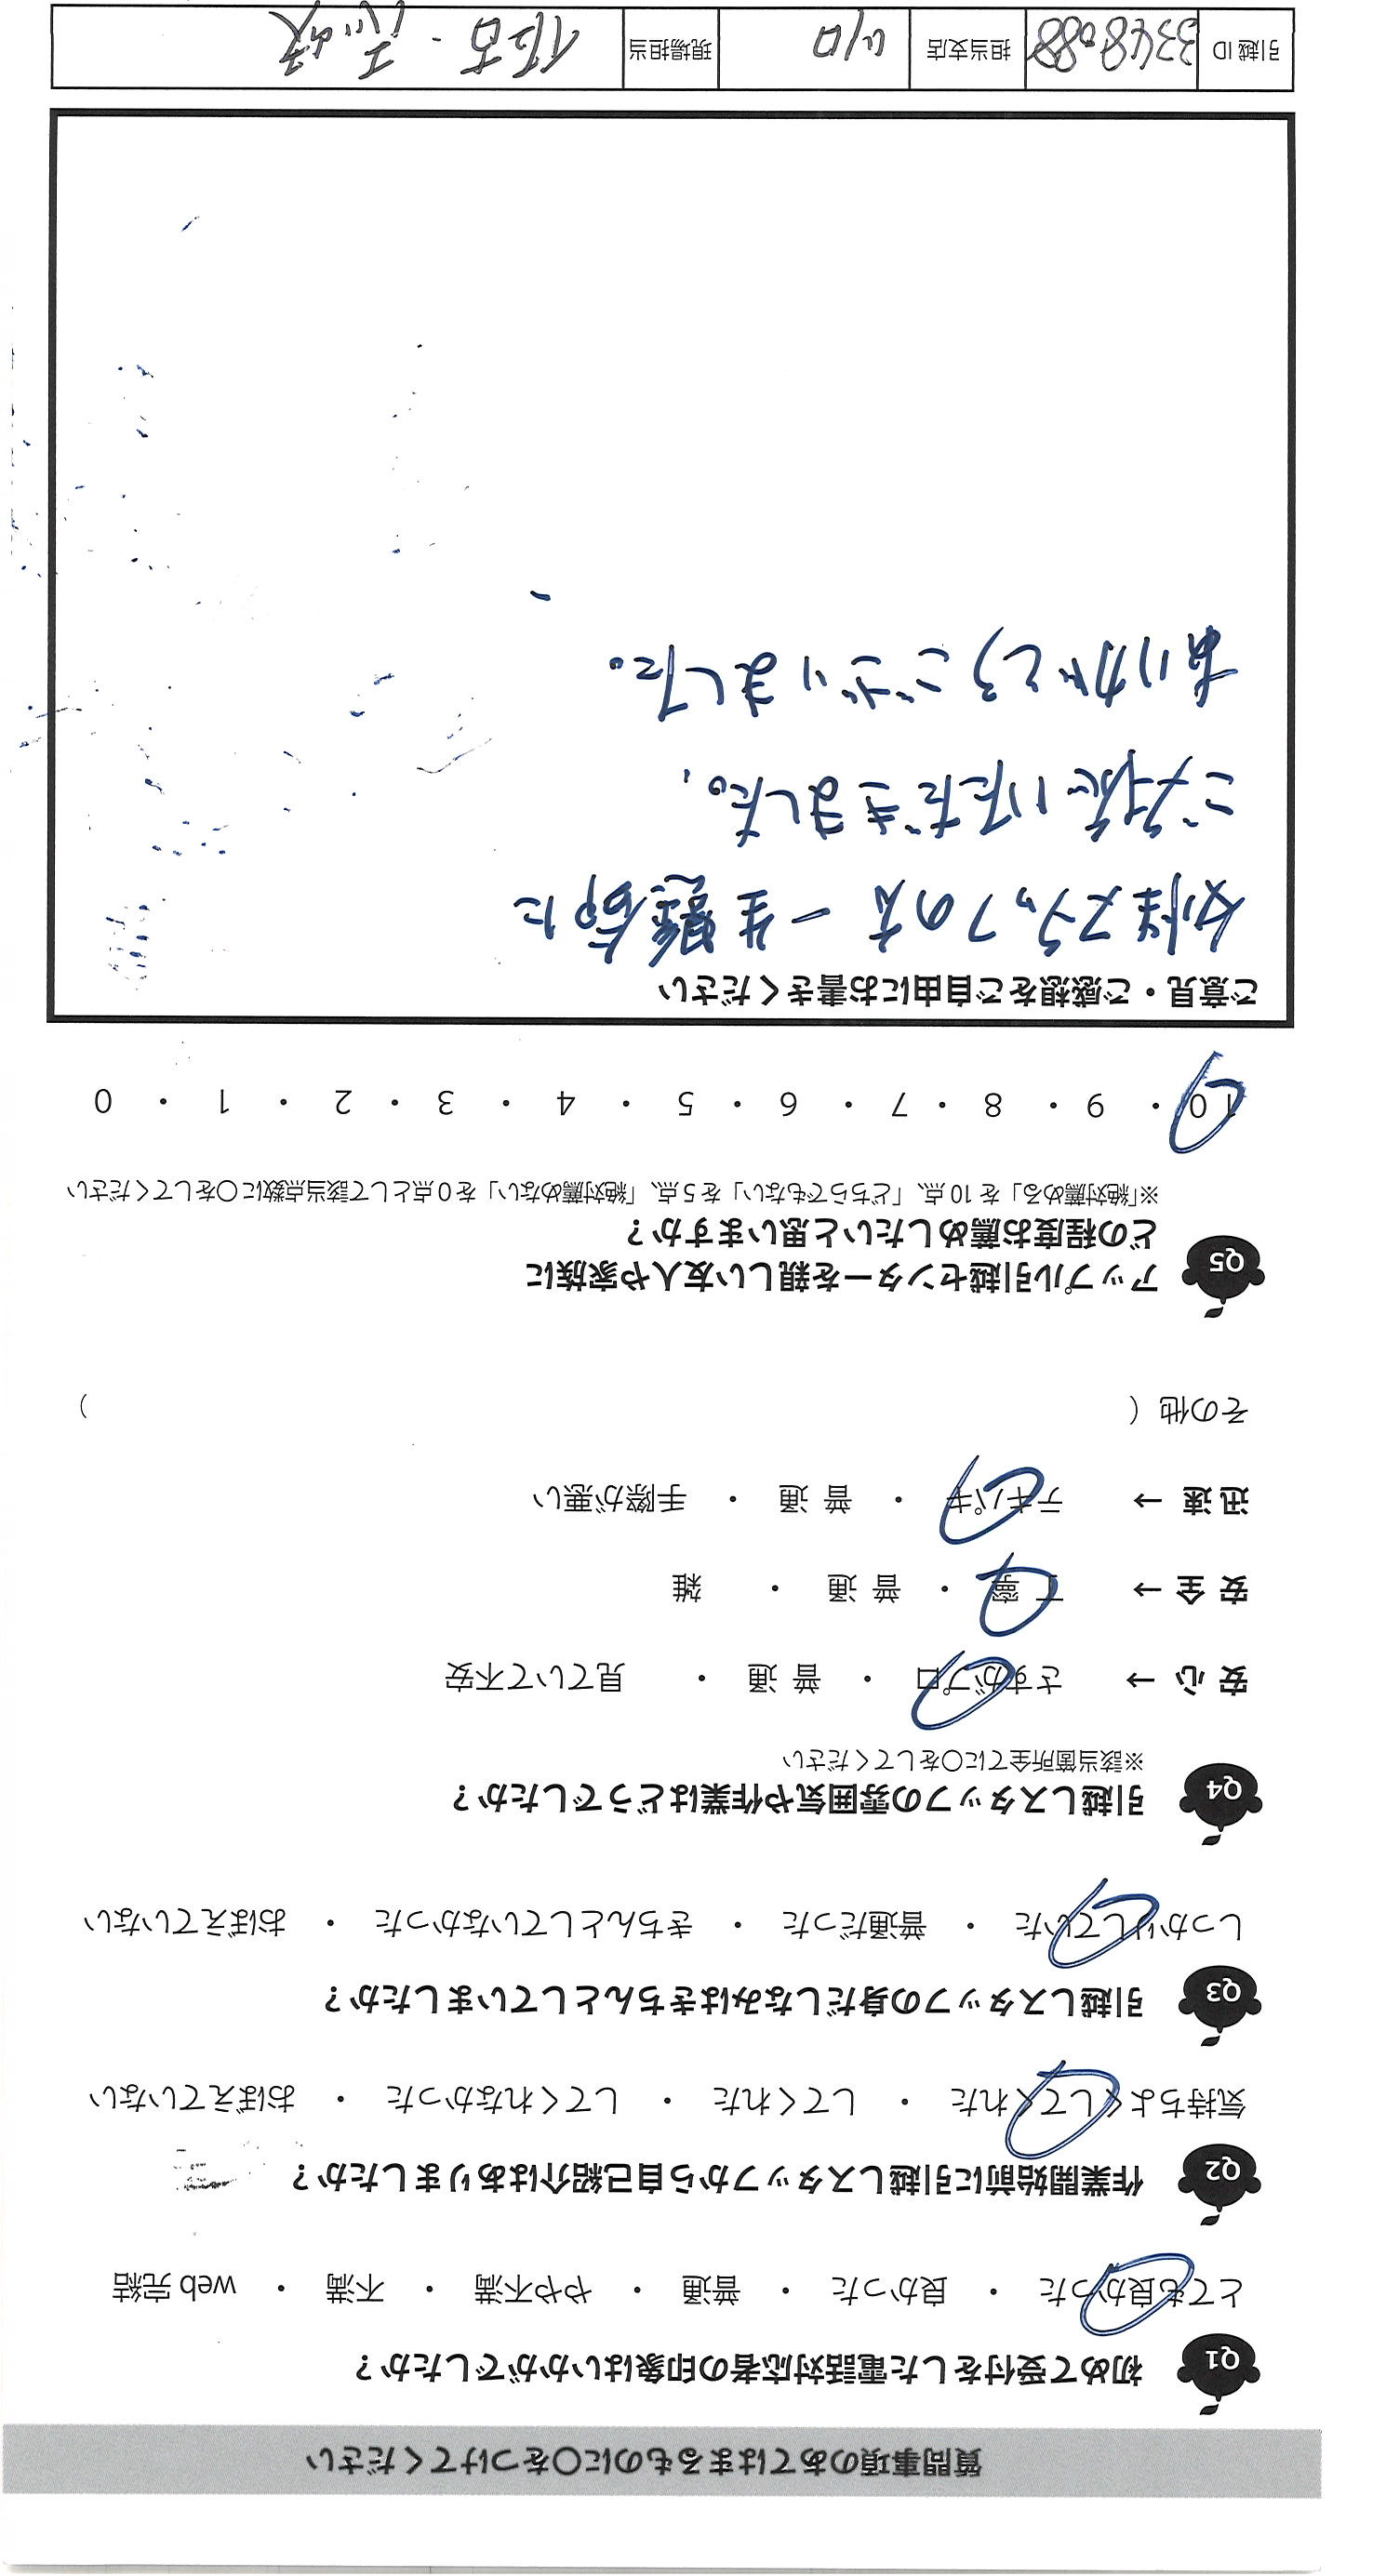 質問事項のあてはまるものに〇をつけてください
Q1 初めて受付をした電話対応者の印象はいかがでしたか？
とても良かった ・ 良かった ・ 普通 ・ やや不満 ・ 不満 ・ web 完結
Q2 作業開始前に引越しスタッフから自己紹介はありましたか？
気持ちよくしてくれた ・ してくれた ・ してくれなかった ・ おぼえていない
Q3 引越しスタッフの身だしなみはきちんとしていましたか？
しっかりしていた ・ 普通だった ・ きちんとしていなかった ・ おぼえていない
Q4 引越しスタッフの雰囲気や作業はどうでしたか？
※該当箇所全てに〇をしてください
安 心 → さすがプロ ・ 普 通 ・ 見ていて不安
安 全 → 丁 寧 ・ 普 通 ・ 雑
迅 速 → テキパキ ・ 普 通 ・ 手際が悪い
その他（ ）
Q5 アップル引越センターを親しい友人や家族に
どの程度お薦めしたいと思いますか？
※「絶対薦める」を 10 点、「どちらでもない」を 5 点、「絶対薦めない」を 0 点として該当点数に〇をしてください
10 ・ 9 ・ 8 ・ 7 ・ 6 ・ 5 ・ 4 ・ 3 ・ 2 ・ 1 ・ 0
ご意見・ご感想をご自由にお書きください
女性スタッフの方 一生懸命に
ご対応いただきました。
ありがとうございました。
引越 ID 3348088 担当支店 現場担当 住吉・